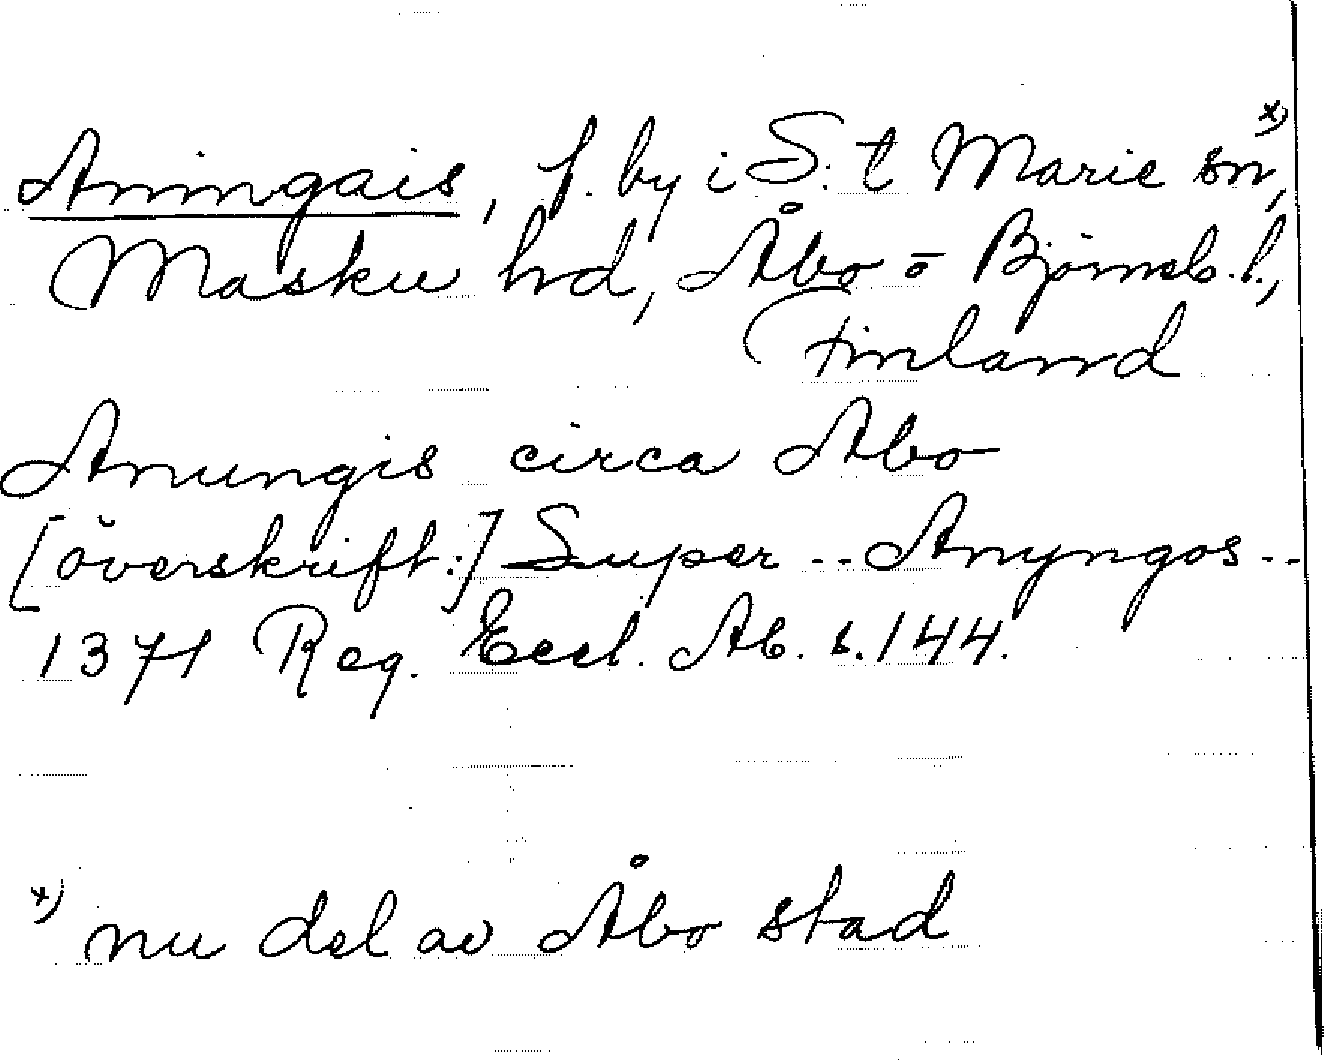 Aningais, f. by i S:t Marie sn, x)
Masku hd, Åbo o Björneb. l.,
Finland
Anungis circa Abo
[överskrift:] Super -- Anyngos --
1371 Reg. Eccl. Ab. s. 144.
x) nu del av Åbo stad